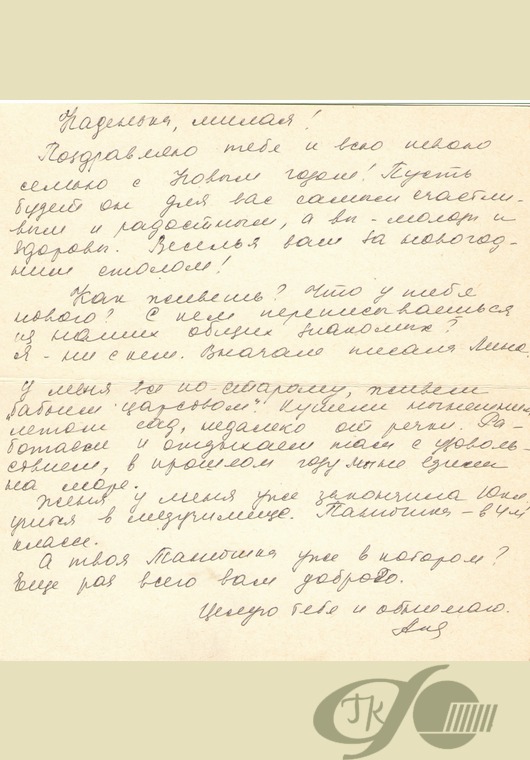 Наденька, милая!
Поздравляю тебя и всю вашу
семью с Новым годом! Пусть
будет он для вас самым счастли-
вым и радостным, а вы - молоды и
здоровы. Веселья вам за новогод-
ним столом!
Как живёшь? Что у тебя
нового? С кем переписываешься
из наших общих знакомых?
Я - ни с кем. Вначале писала Лина.
У меня всё по-старому, живём
"бабьим царством". Купили нынешним
летом сад, недалеко от речки. Ра-
ботаем и отдыхаем там с удоволь-
ствием, в прошлом году мы не ездили
на море.
Женя у меня уже закончила
учится в медучилище. Танюшка - в 4м
классе.
А твоя Танюшка уже в котором?
Ещё раз всего вам доброго.
Целую тебя и обнимаю.
Аня
ГК